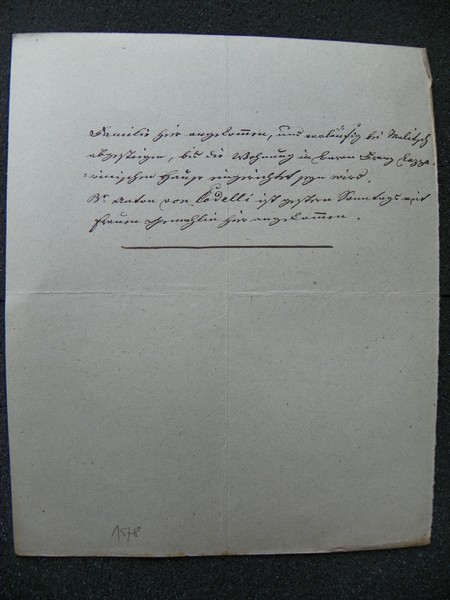 Familie hier angekommen, und vorläufig bei Malitsch
abgestiegen, bis die Wohnung im Baron Franz Lazza-
rinischen Hause eingerichtet seyn wird.
Br. Anton von Codelli ist gestern Sonntags mit
Frauen Gemahlin hier angekommen.
1578